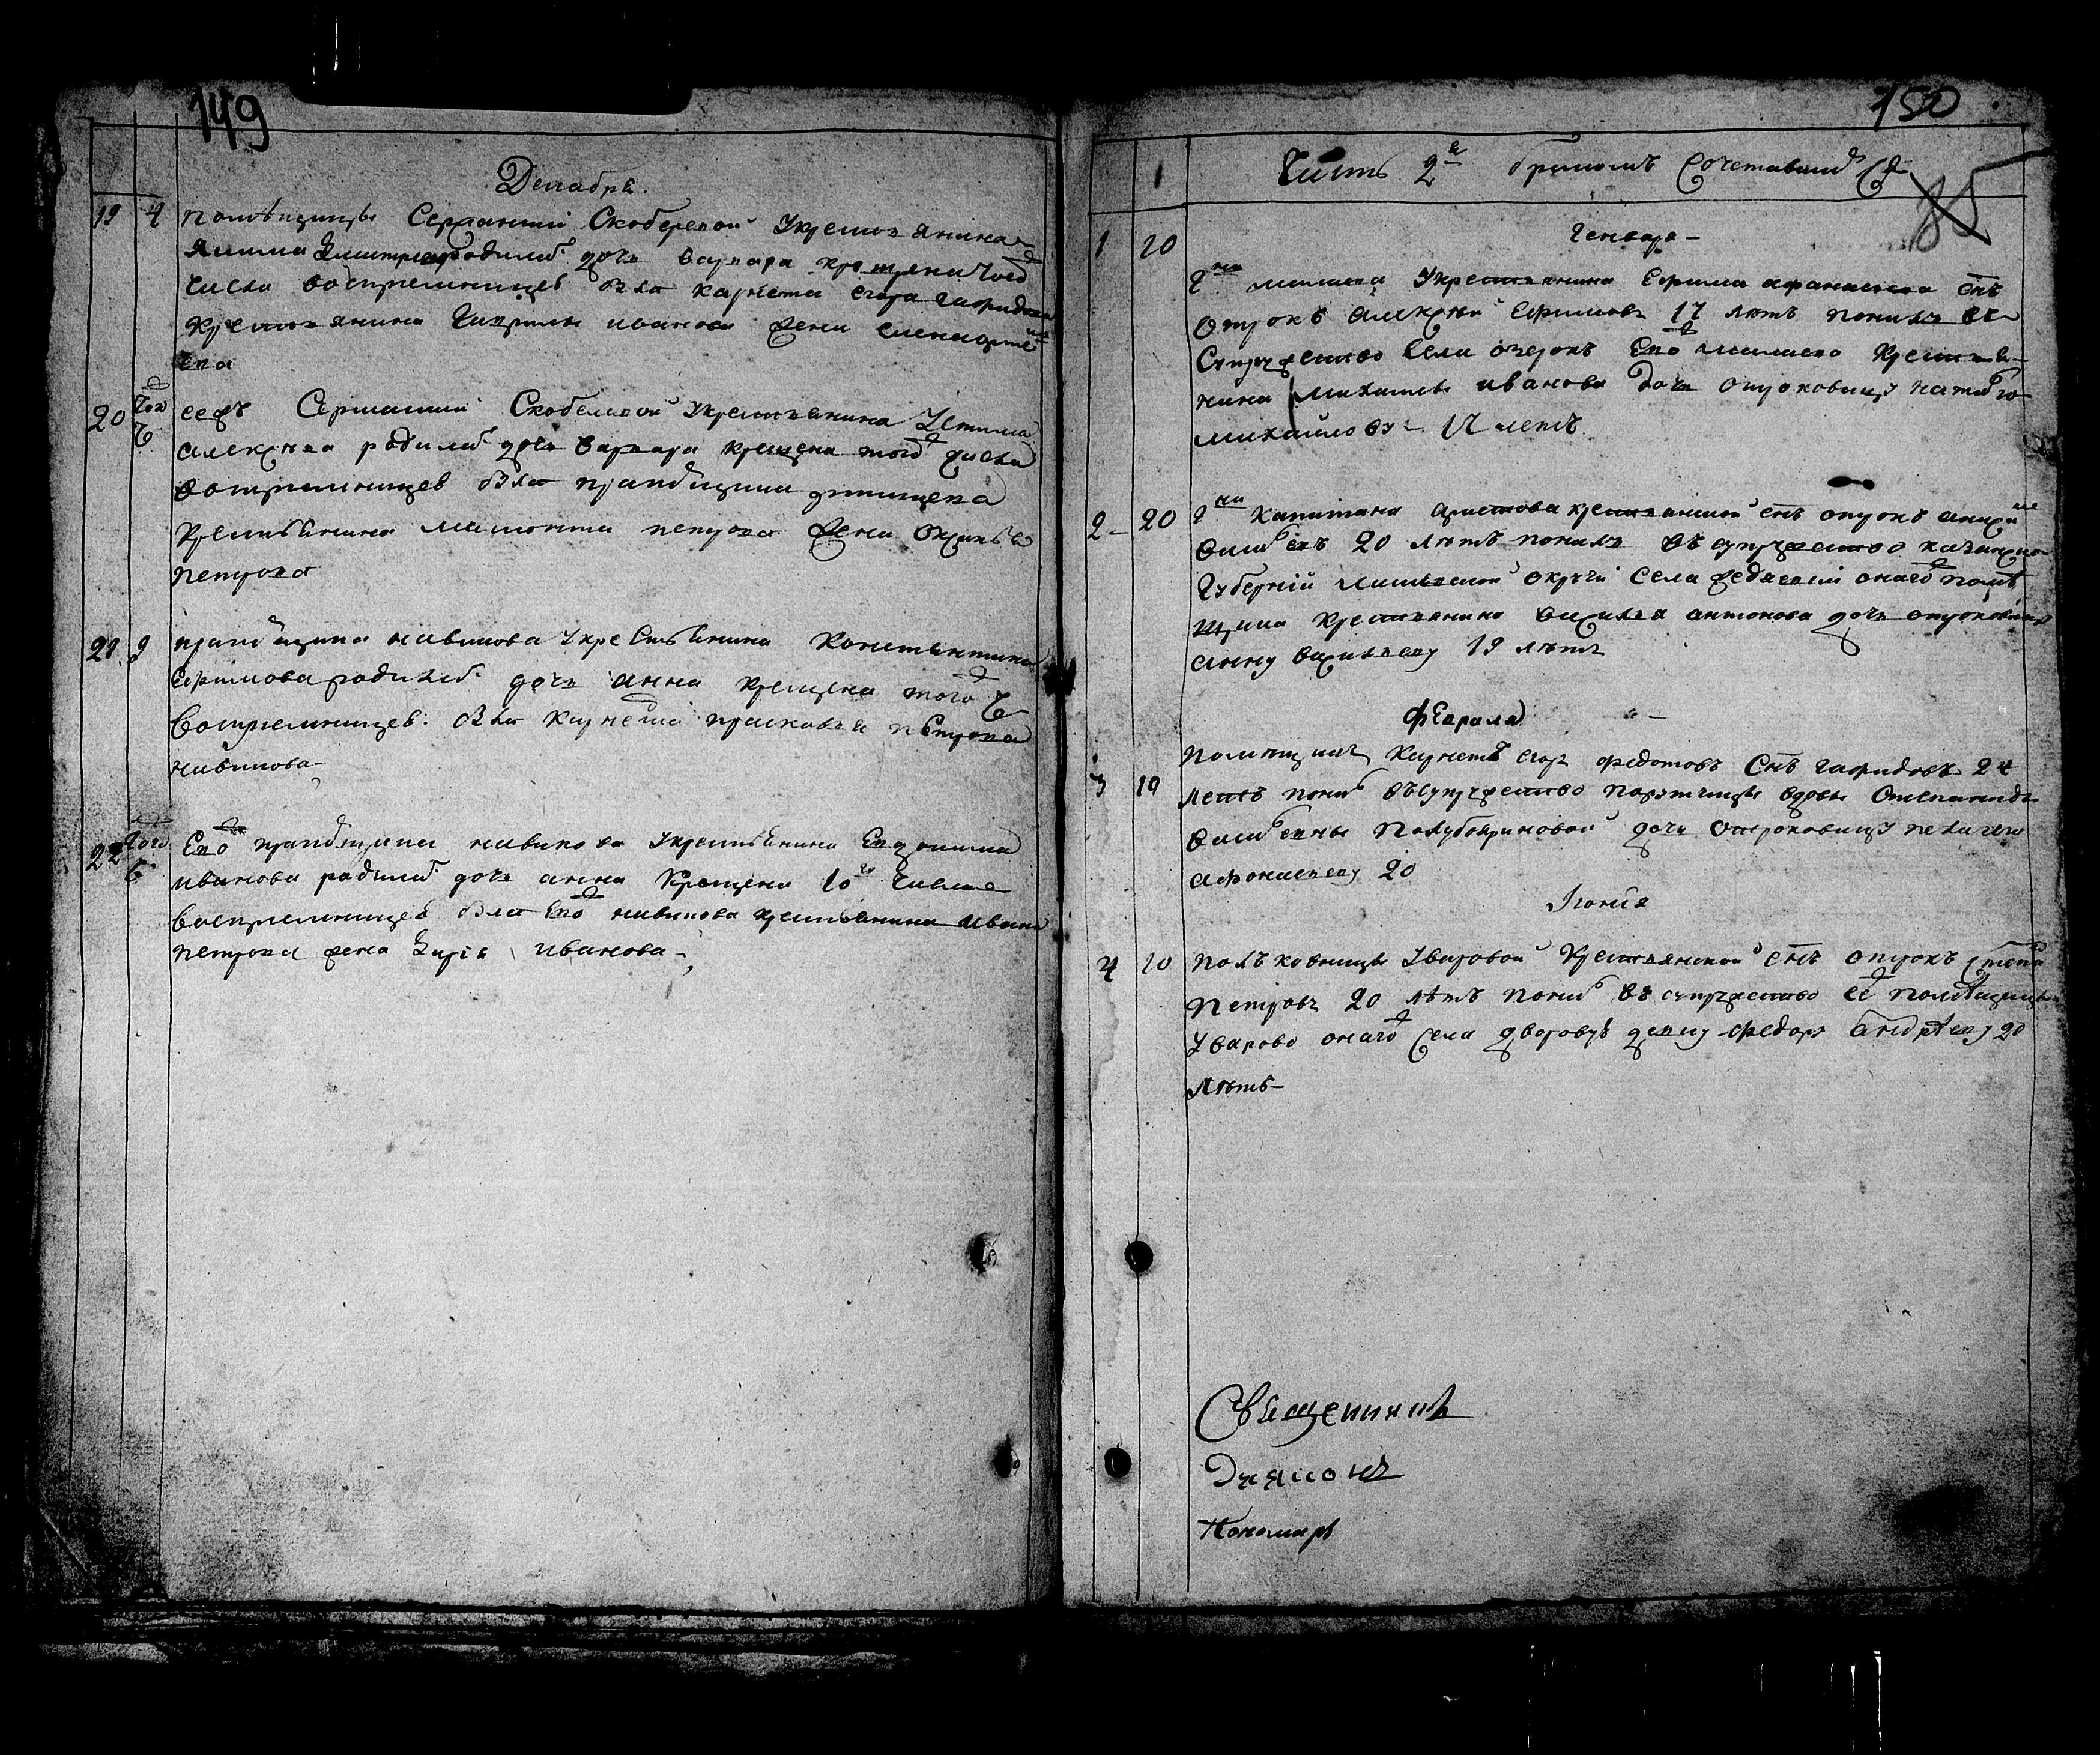 149
Декабрь.
19 4 помѣщицы Сержанши Скобелевой Укрестьянина
Якима Дмитриева родилась дочь варвара крещена того
числа воспремницею была карнета егора
крестьянина Гаврилы иванова жена елена
ева
20 того ч сеяжъ Сержанши Скобелевой укрестьянина Устина
алексѣева родилась дочь варвара крещена того числа
воспремницею была прапорщика
крестьянина мамонта петрова жена
петрова
21 9 прапорщика навикова укрестьянина Констентина
Ефимова родилась дочь анна крещена того ч
Воспремницею была карнета прасковья петрова
навикова
22 того ч Ево прапорщика навикова укрестьянина Евдокима
иванова родилась дочь анна крещена 10го числа
воспремницею была ево навикова крестьянина ивана
петрова жена Дарья иванова
150
1 Часть 2я браком Сочетавшихся
85
Генваря
1 20 Укрестьянина Ефима афанасьева снъ
отрокъ алексѣй Ефимовъ 17 лѣтъ понялъ въ
Супружество Села озерокъ Ево крестья-
нина михаилы иванова дочь отроковицу наталью
михайлову 17 летъ
2 20 Капитана аристова крестьянской снъ отрокъ
васильевъ 20 лѣтъ понялъ въ супружество казанской
Губерніи округи села онаго помѣ
щика крестьянина василья антонова дочь отроковицу
анну васильеву 19 лѣтъ
Февраля
3 19 помещикъ карнетъ егор федотовъ снъ 24
летъ понялъ въ супружество порутчицы вдовы Степаниды
васильевны Полубояриновой дочь отроковицу пелагею
афонасьеву 20
Іюнія
4 10 полъковницы Уваровой Крестьянской снъ отрокъ степа
петровъ 20 лѣтъ понялъ въ супружество ее помѣщицы
Уварово онаго села дворовую девку федору андрѣеву 20
лѣтъ
Священникъ
Диаконъ
Пономарь